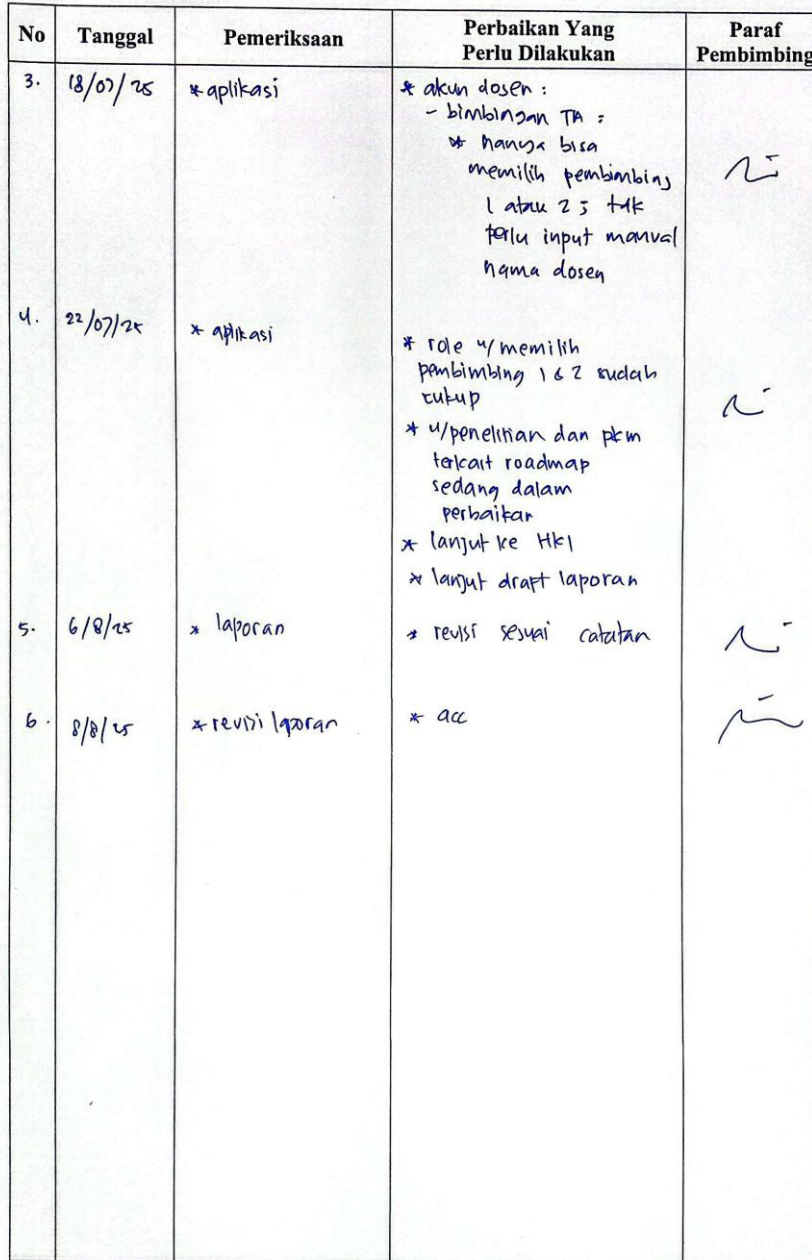 No Tanggal Pemeriksaan Perbaikan Yang Perlu Dilakukan Paraf Pembimbing
3. 18/07/25 * aplikasi * akun dosen :
- bimbingan TA :
* hanya bisa
memilih pembimbing
1 atau 2 ; tdk
perlu input manual
nama dosen
4. 22/07/25 * aplikasi * role u/ memilih
pembimbing 1 & 2 sudah
cukup
* u/penelitian dan pkm
terkait roadmap
sedang dalam
perbaikan
* lanjut ke HKI
* lanjut draft laporan
5. 6/8/25 * laporan * revisi sesuai catatan
6. 8/8/25 * revisi laporan * acc